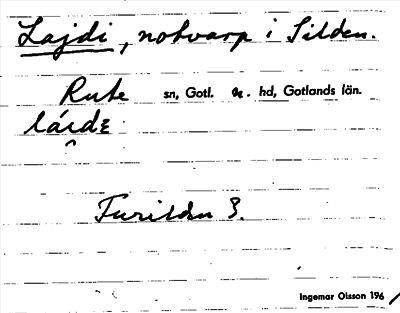 Lajdi, notvarp i Silden.
Rute sn, Gotl. n. hd, Gotlands län.
láidε
Furilden 3.
Ingemar Olsson 196/